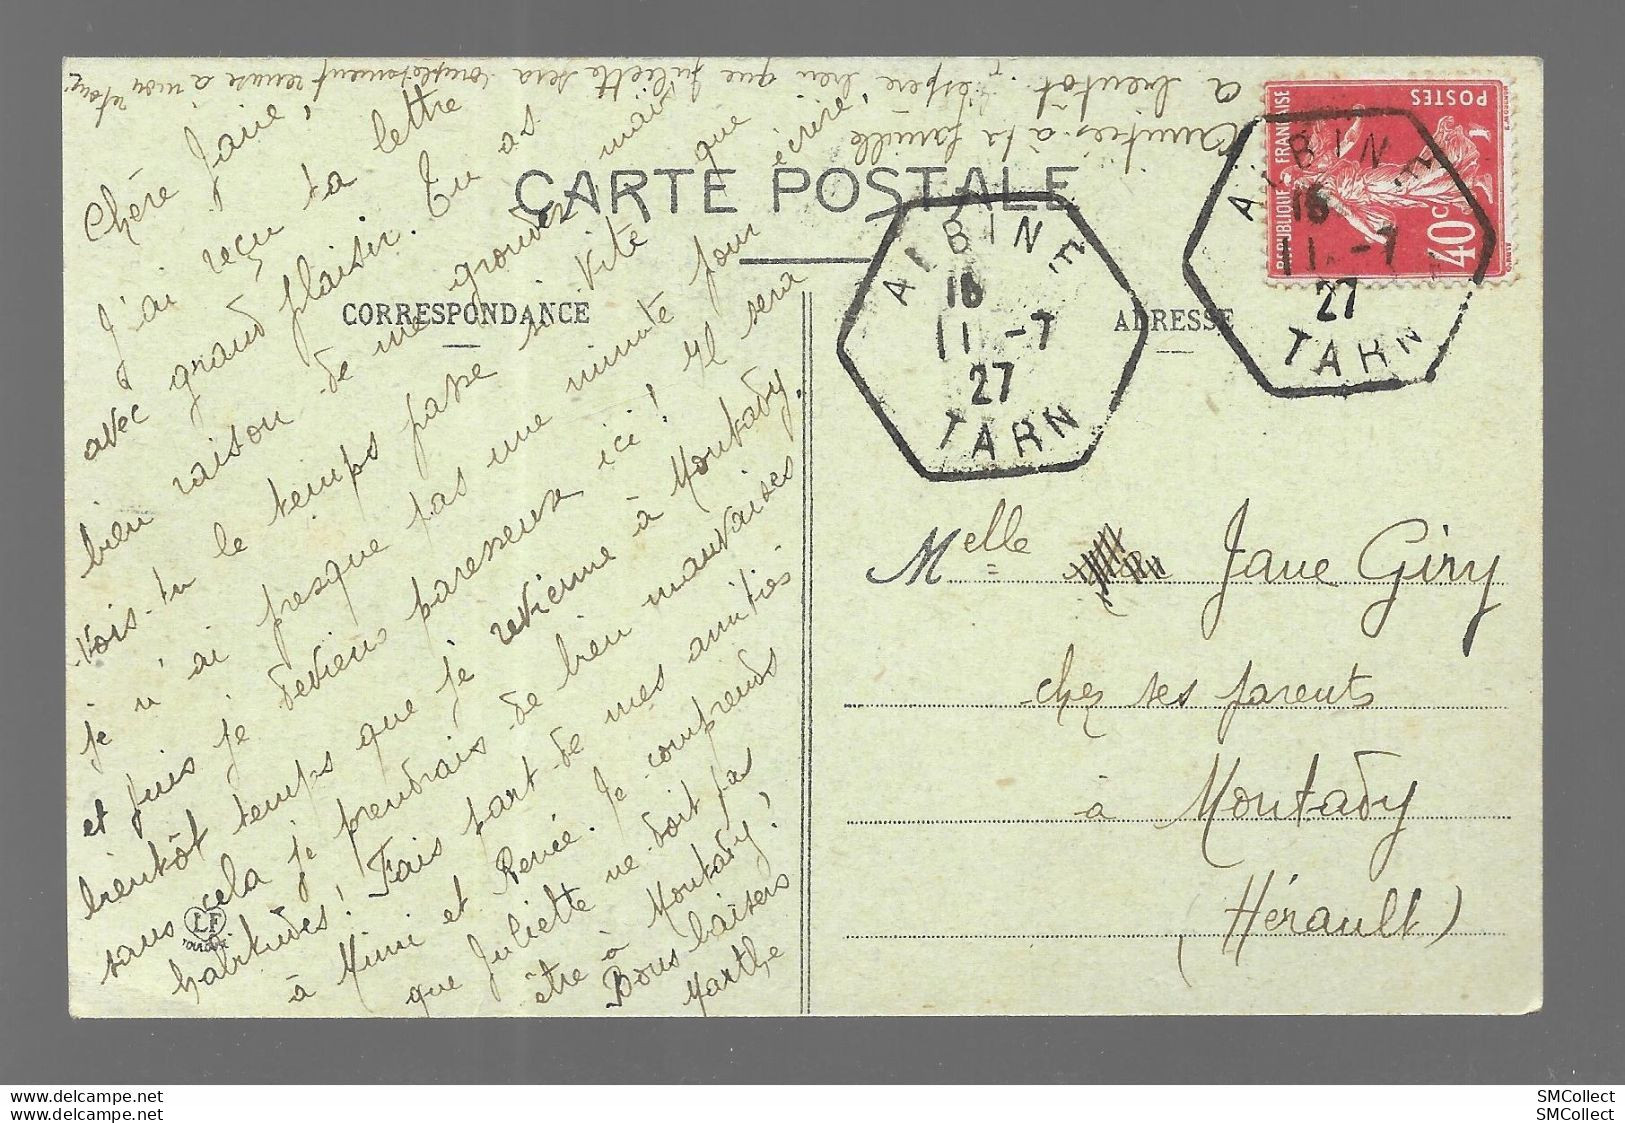 CARTE POSTALE
CORRESPONDANCE
ADRESSE
Chère Jane,
J'ai reçu ta lettre
avec grand plaisir. Tu as
bien raison de me gronder mais
vois-tu le temps passe si vite que
je n'ai presque pas une minute pour écrire,
et puis je deviens paresseuse ici! Il sera
bientôt temps que je revienne à Montady,
sans cela je prendrais de bien mauvaises
habitudes! Fais part de mes amitiés
à Mimi et Renée. Je comprends
que Juliette ne doit pas
être à Montady!
Bons baisers
Marthe
Amitiés à ta famille
à bientôt. J'espère bien que Juliette sera complètement remise à mon retour.
REPUBLIQUE FRANÇAISE
POSTES
40c
ALBINE
16
11 -7
27
TARN
ALBINE
16
11 -7
27
TARN
Melle Jane Giry
chez ses parents
à Montady
(Hérault)
LF
SMCollect
SMCollect